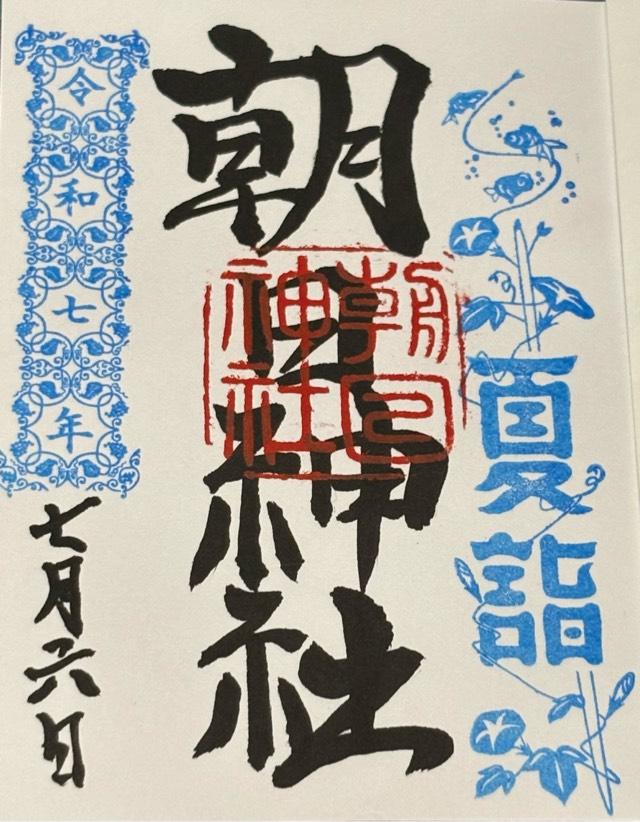 夏詣
朝日神社
朝日
神社
令和七年
七月六日